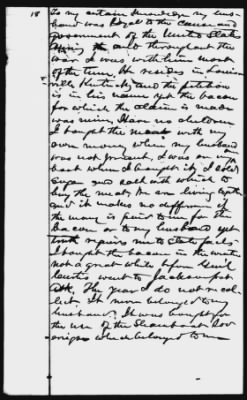 18 To my certain knowledge my hus-
band was loyal to the cause and
government of the United States
during the and throughout the
war I was with him most
of the time. He resides in Louis
ville Kentucky and the petition
is in his name yet the bacon
for which the claim is made
was mine. I have no children
I bought the meat with my
own money when my husband
was not present. I was on my
boat when I bought it. I sold
sugar and with which to
buy the meat. We are living
and it makes no difference if
the money is paid to me for the
bacon or to my husband yet
truth requires me to state facts.
I bought the bacon in the winter
not a great while before Genl
went to Jacksonport
Ark. The year I do not recol-
lect. It never belonged to my
husband. It was bought for
the use of the Steamboat Sov
ereign which belonged to me